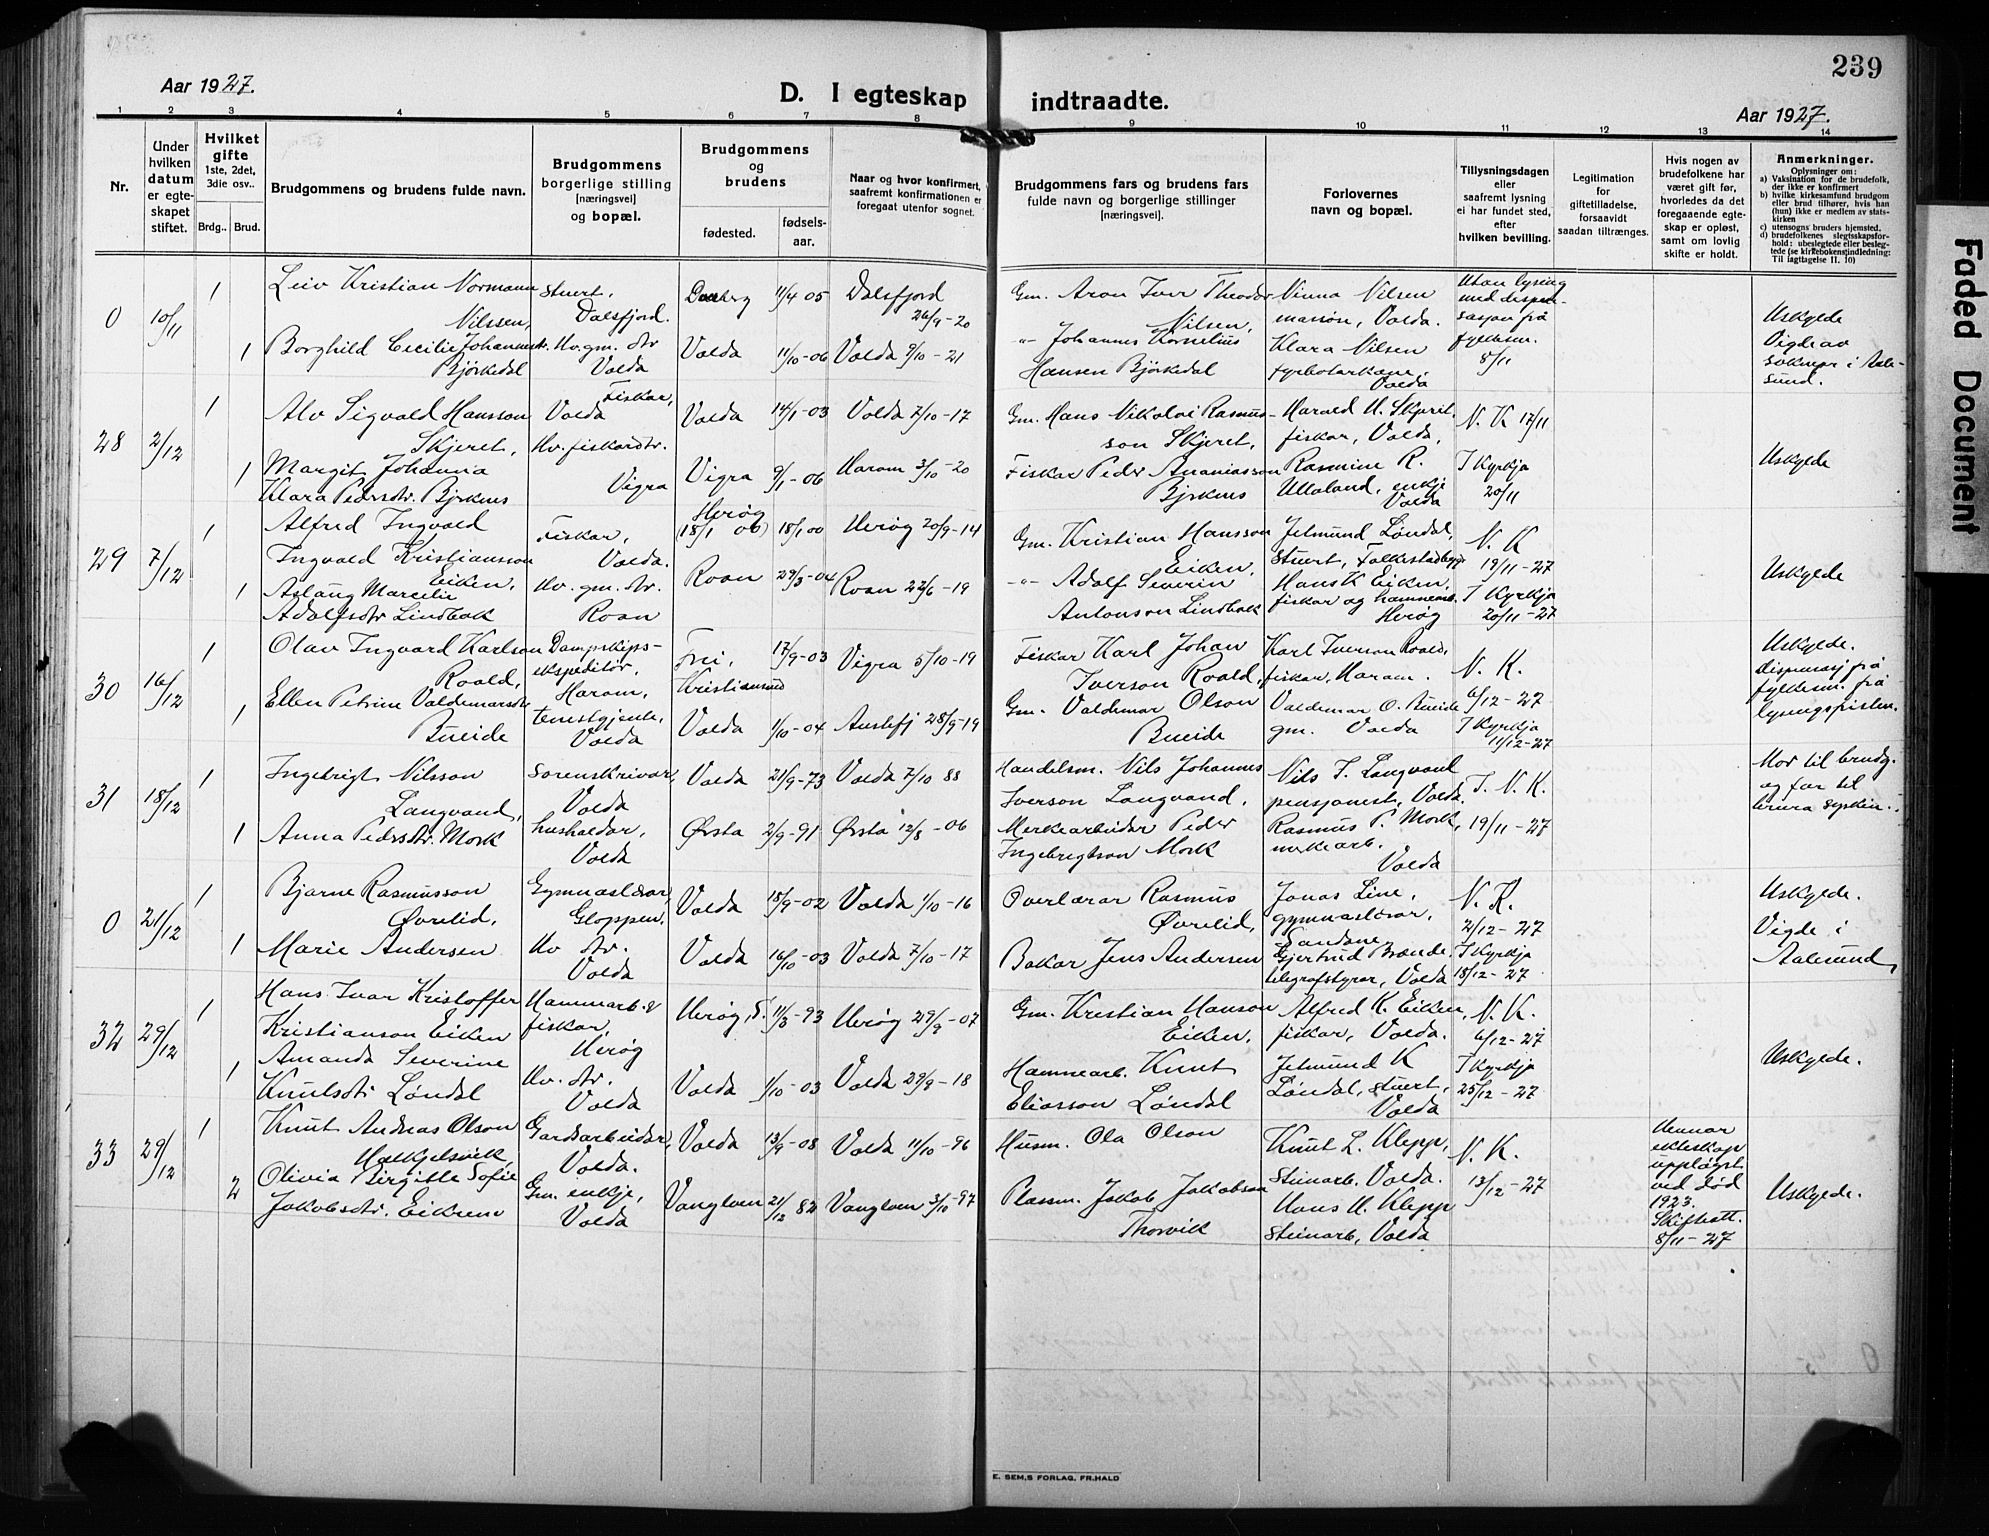 239
Aar 1927.
D. I egteskap indtraadte.
Aar 1927.
1 2 3 4 5 6 7 8 9 10 11 12 13 14
Nr.
Under hvilken datum er egte-skapet stiftet.
Hvilket gifte 1ste, 2det, 3die osv..
Brdg.. Brud.
Brudgommens og brudens fulde navn.
Brudgommens borgerlige stilling [næringsvei] og bopæl.
Brudgommens og brudens
fødested. fødsels-aar.
Naar og hvor konfirmert, saafremt konfirmationen er foregaat utenfor sognet.
Brudgommens fars og brudens fars fulde navn og borgerlige stillinger [næringsvei].
Forlovernes navn og bopæl.
Tillysningsdagen eller saafremt lysning ei har fundet sted, efter hvilken bevilling.
Legitimation for giftetilladelse, forsaavidt saadan tiltrænges.
Hvis nogen av brudefolkene har været gift før, hvorledes da det foregaaende egte-skap er opløst, samt om lovlig skifte er holdt.
Anmerkninger.
Oplysninger om:
a) Vaksination for de brudefolk, der ikke er konfirmert
b) hvilke kirkesamfund brudgom eller brud tilhører, hvis han (hun) ikke er medlem av stats-kirken
c) utensogns bruders hjemsted.
d) brudefolkenes slegtsskapsfor-hold: ubeslegtede eller besleg-tede (se kirkebokens indledning: Til iagttagelse II. 10)
0 10/11 1 Leiv Kristian Normann Nilssen, Stuert, Dalsfjord. 11/4 05 Dalsfjord 26/9-20 Gm. Aron Iver Theodor Nilsen, Ninna Nilsen Volda. Utan lysing med dispen-sasjon på fylkesm. 8/11 Uskylde
1 Borghild Cecilie Johannesdtr. Bjørkedal Hv. gm. dtr Volda Volda 11/10-06 Volda 9/10-21 -"- Johannes Kornelius Hansen Bjørkedal Klara Nilsen Volda Vigde av soknepr i Aale-sund.
28 2/12 1 Alv Sigvald Hansson Skjeret, Fiskar, Volda Volda 14/1-03 Volda 7/10-17 Gm. Hans Nikolai Rasmus-son Skjeret, Harald H. Skjeret fiskar, Volda, N. K 17/11 Uskylde
1 Margit Johanna Klara Pedersdtr. Bjørknes Hv. fiskardtr. Vigra Vigra 9/1-06 Haram 3/10-20 Fiskar Peder Ananiasson Bjørknes Rasmine R. Ulleland, enkje Volda I Kyrkja 20/11
29 7/12 1 Alfred Ingvald Ingvald Kristiansson Eiken, Fiskar, Volda. Herøy (18/1 00) 18/1 00 Herøy 20/9-14 Gm. Kristian Hansson Eiken, Jetmund Løndal, Stuert, Folkestadbygd N. K 19/11-27 Uskylde
1 Aslaug Marcelie Adolfsdtr Lindbak Hv. gm. dtr. Roan Roan 29/3-04 Roan 22/6-19 -"- Adolf Severin Antonson Lindbak Hans K Eiken, fiskar og hamnearb. Herøy I Kyrkja 20/11-27
30 16/12 1 Olav Ingvard Karlson Roald, Dampskips-ekspeditør, Haram, Frei, Kristiansund 17/9-03 Vigra 5/10-19 Fiskar Karl Johan Iverson Roald, Karl Iverson Roald, fiskar, Haram. N. K. 6/12-27 Uskylde. Dispensasj på fylkesm. frå lysingsfristen.
1 Ellen Petrine Valdemarsdtr Bueide tenestgjente, Volda Volda 1/10-04 Austefj 28/9-19 Gm. Valdemar Olson Bueide Valdemar O. Bueide gm. Volda I Kyrkja 11/12-27
31 18/12 1 Ingebrigt Nilsson Langvand, Sorenskrivar, Volda Volda 21/9-73 Volda 7/10 88 Handelsm. Nils Johannes Iverson Langvand, Nils J. Langvand pensjonist, Volda. I. N. K. 19/11-27 Mor til brudg. og far til brura syskin.
1 Anna Pedersdtr. Mork husholdar, Volda Ørsta 2/9-91 Ørsta 12/8-06 Merkearbeidar Peder Ingebregtson Mork Rasmus P. Mork, merkearb. Volda
0 21/12 1 Bjarne Rasmusson Øvrelid, Gymnaslærar, Gloppen. Volda 18/9-02 Volda 1/10-16 Overlærar Rasmus Øvrelid, Jonas Line, gymnaslærar, Sandane N. K. 2/12-27 Uskylde.
1 Marie Andersen Hv dtr. Volda Volda 16/10-03 Volda 7/10-17 Bakar Jens Andersen Gjertrud Brænde telegrafstyrar, Volda I Kyrkja 18/12-27 Vigde i Aalesund,
32 29/12 1 Hans Ivar Kristoffer Kristianson Eiken Hamnarb. & fiskar, Herøy Herøy, S. 11/3-93 Herøy 29/9-07 Gm. Kristian Hanson Eiken, Alfred K. Eiken, fiskar, Volda. N. K. 6/12-27 Uskylde.
1 Amanda Severine Knutsdtr Løndal Hv. dtr. Volda Volda 1/10-03 Volda 29/9-18 Hamnearb. Knut Eliasson Løndal Jetmund K Løndal, stuert, Volda I Kyrkja 25/12-27
33 29/12 1 Knut Andreas Olson Gardsarbeidar, Volda. Volda 13/9-08 Volda 11/10-96 Husm. Ola Olson Knut L. Klepp, Steinarb, Volda. N. K. 13/12-27 Hennar ekteskap uppløyst ved død 1923. Skifteatt. 8/11-27 Uskylde.
2 Olivia Birgitte Sofie Jakobsdtr. Eikrem Gm. enkje, Volda Vanylven 21/12 82 Vanylven 3/10-97 Plassm. Jakob Jakobson Thorvik Hans H. Klepp steinarb, Volda
E. SEM,S FORLAG, FR.HALD
Faded Document